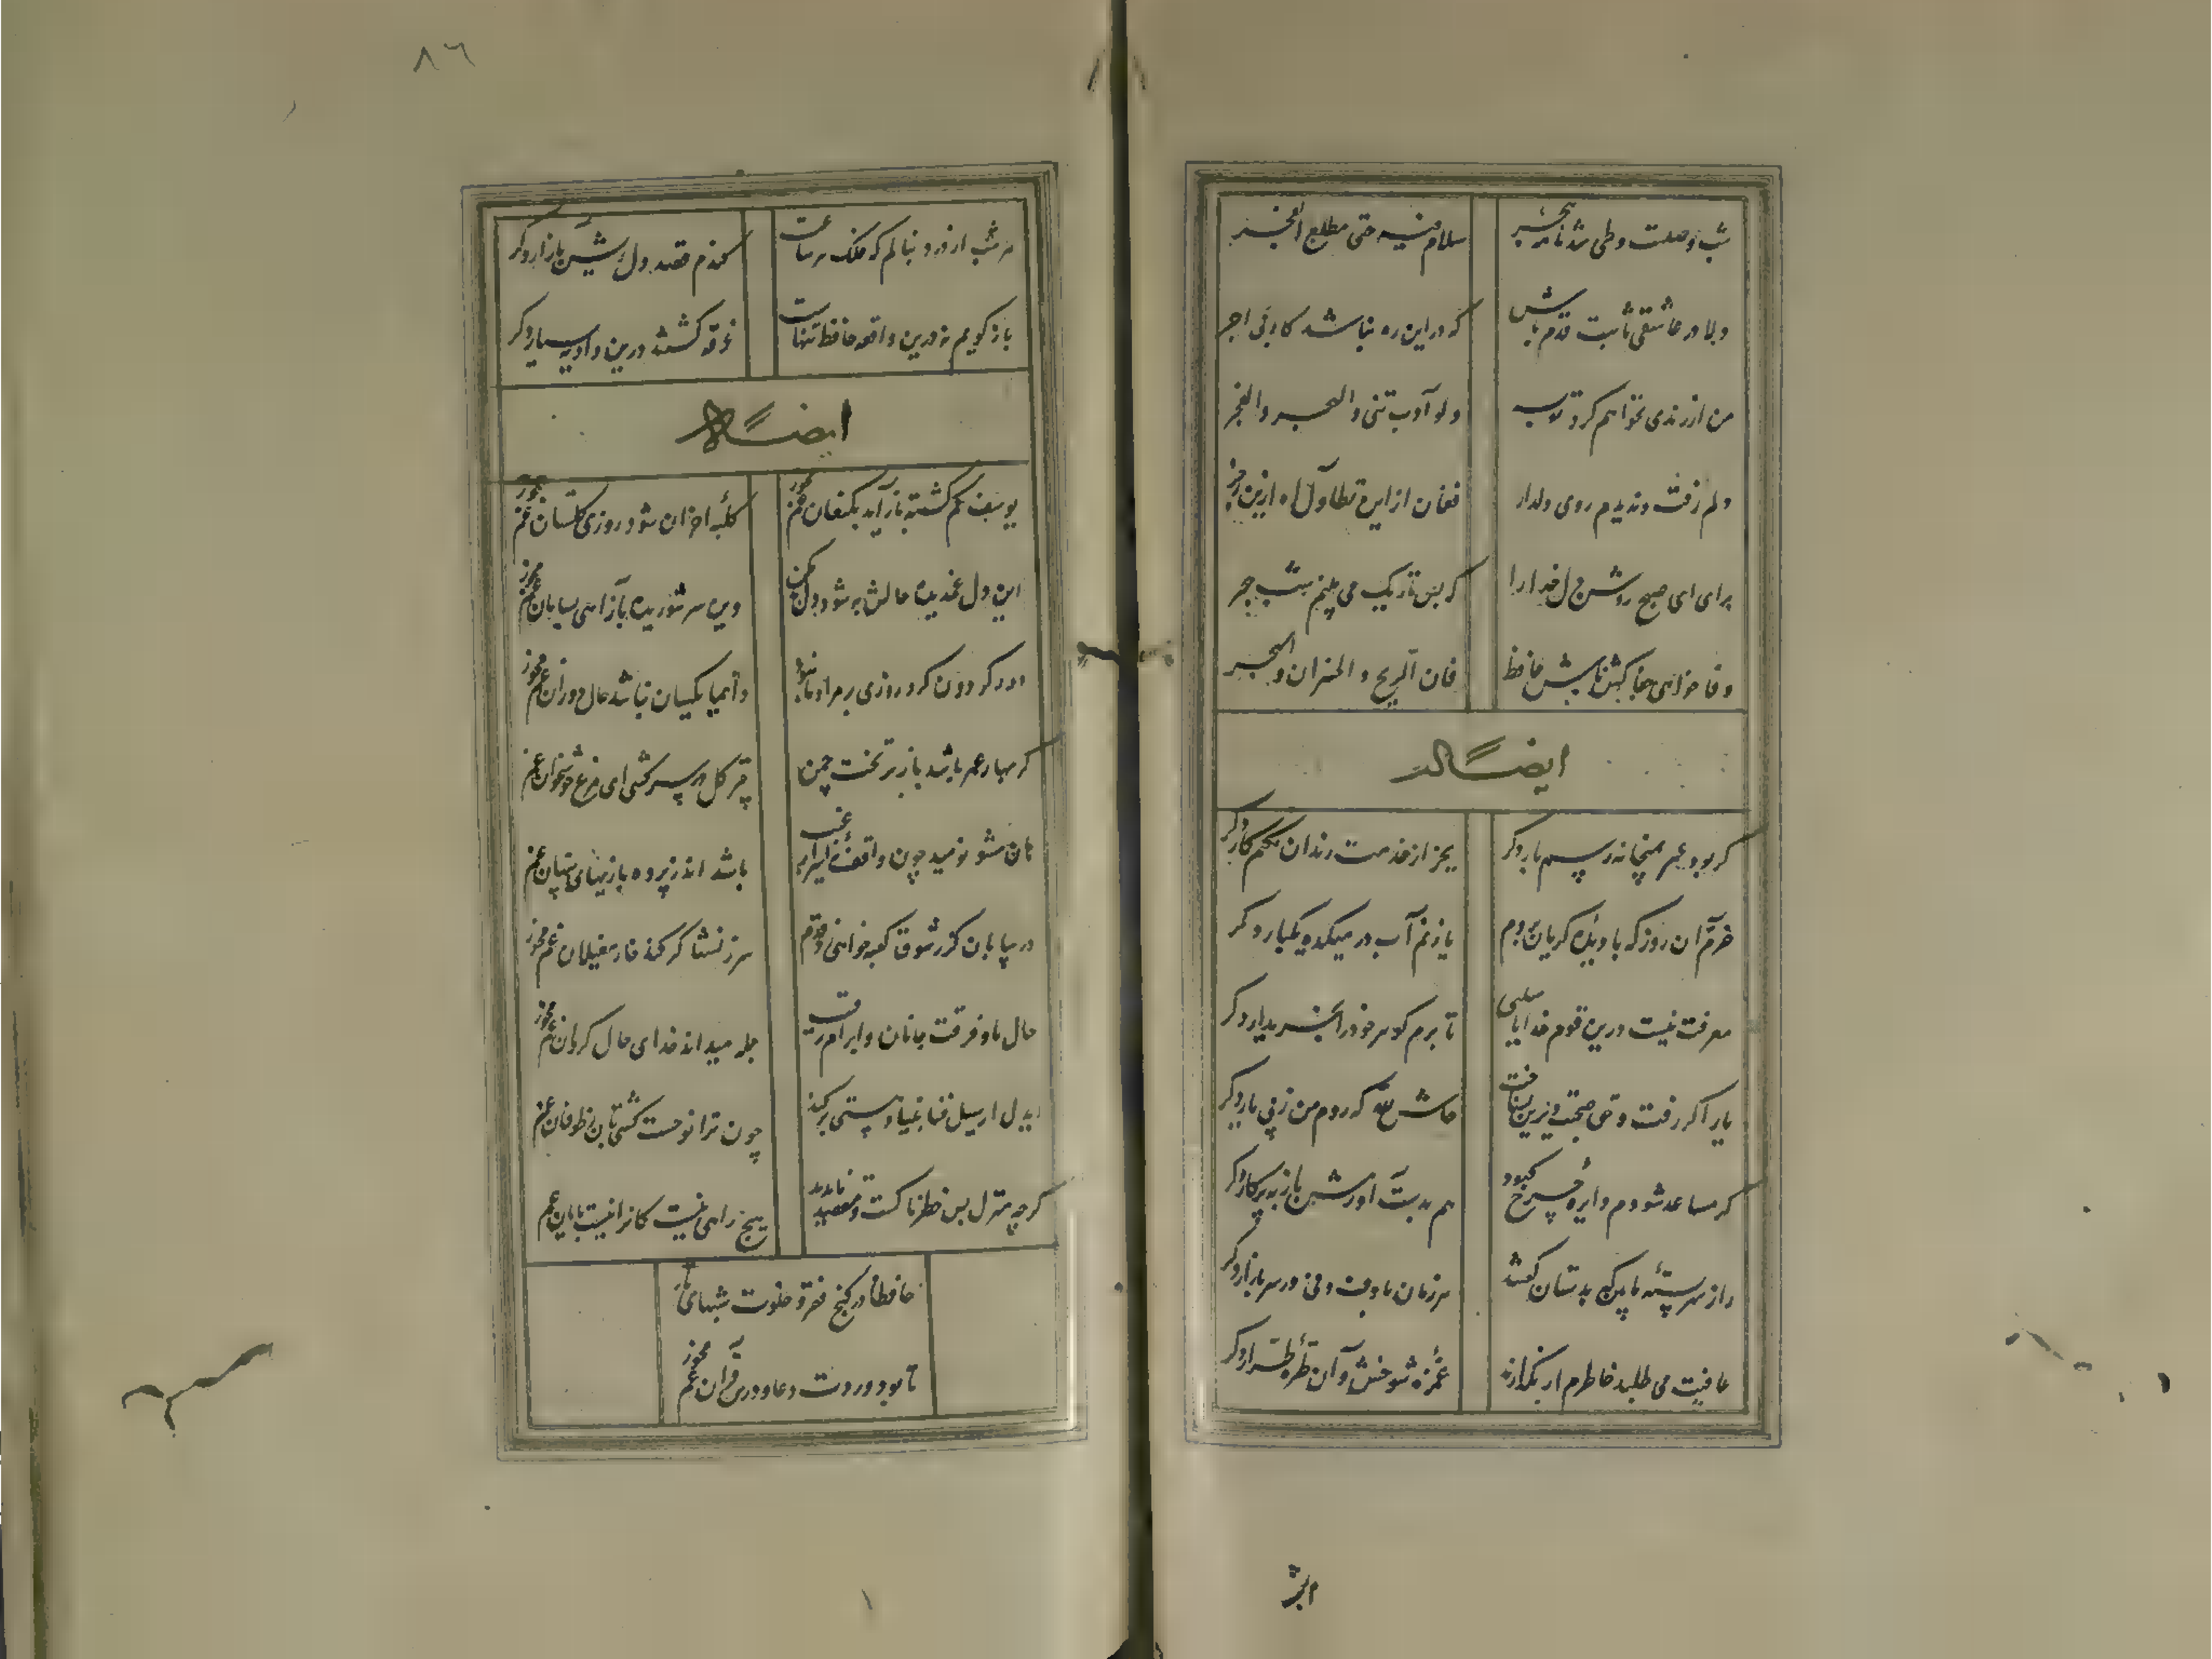 شب وصلست و طی شد نامه هجر
سلام فیه حتی مطلع الفجر
دلا در عاشقی ثابت قدم باش
که در این ره نباشد کار بی اجر
من از رندی نخواهم کرد توبه
ولو آذیتنی والهجر والحجر
دلم رفت و ندیدم روی دلدار
فغان از این تطاول آه ازین زجر
برای ای صبح روشن دل خدا را
که بس تاریک می بینم شب هجر
وفا خواهی جفاکش باش حافظ
فان الربح و الخسران و التجر
ایضاً له
گر بود عمر بمیخانه رسم بار دگر
بجز از خدمت رندان نکنم کار دگر
خرم آن روز که با دیده گریان بروم
تا زنم آب در میکده یکبار دگر
معرفت نیست درین قوم خدایا سببی
تا برم گوهر خود را بخریدار دگر
یار اگر رفت و حق صحبت دیرین نشناخت
حاش لله که روم من ز پی یار دگر
گر مساعد شودم دایره چرخ کبود
هم بدست آورمش باز به پرگار دگر
راز سربسته ما بین که بدستان گفتند
هر زمان با دف و نی در سر بازار دگر
عافیت می طلبد خاطرم ار بگذارند
غمزه شوخش و آن طره طرار دگر
البر
۸۶
هر شب از درد بنالم که فلک هر ساعت
کندم قصد دل ریش بازار دگر
باز گویم نه درین واقعه حافظ تنهاست
غرقه گشتند درین وادیه بسیار دگر
ایضاً له
یوسف گم گشته باز آید بکنعان غم مخور
کلبه احزان شود روزی گلستان غم مخور
این دل غمدیده حالش به شود دل بد مکن
وین سر شوریده باز آید بسامان غم مخور
دور گردون گر دو روزی بر مراد ما نبود
دائما یکسان نباشد حال دوران غم مخور
گر بهار عمر باشد باز بر تخت چمن
چتر گل بر سر کشی ای مرغ خوشخوان غم
هان مشو نومید چون واقف نه ز اسرار غیب
باشد اندر پرده بازیهای پنهان غم
در بیابان گر ز شوق کعبه خواهی زد قدم
سرزنشها گر کند خار مغیلان غم مخور
حال ما و فرقت جانان و ابرام رقیب
جمله میداند خدای حال گردان غم مخور
ای دل ار سیل فنا بنیاد هستی بر کند
چون ترا نوحست کشتیبان ز طوفان غم
گرچه منزل بس خطرناکست و مقصد ناپدید
هیچ راهی نیست کانرا نیست پایان غم
حافظا در کنج فقر و خلوت شبهای تار
تا بود وردت دعا و درس قرآن غم مخور